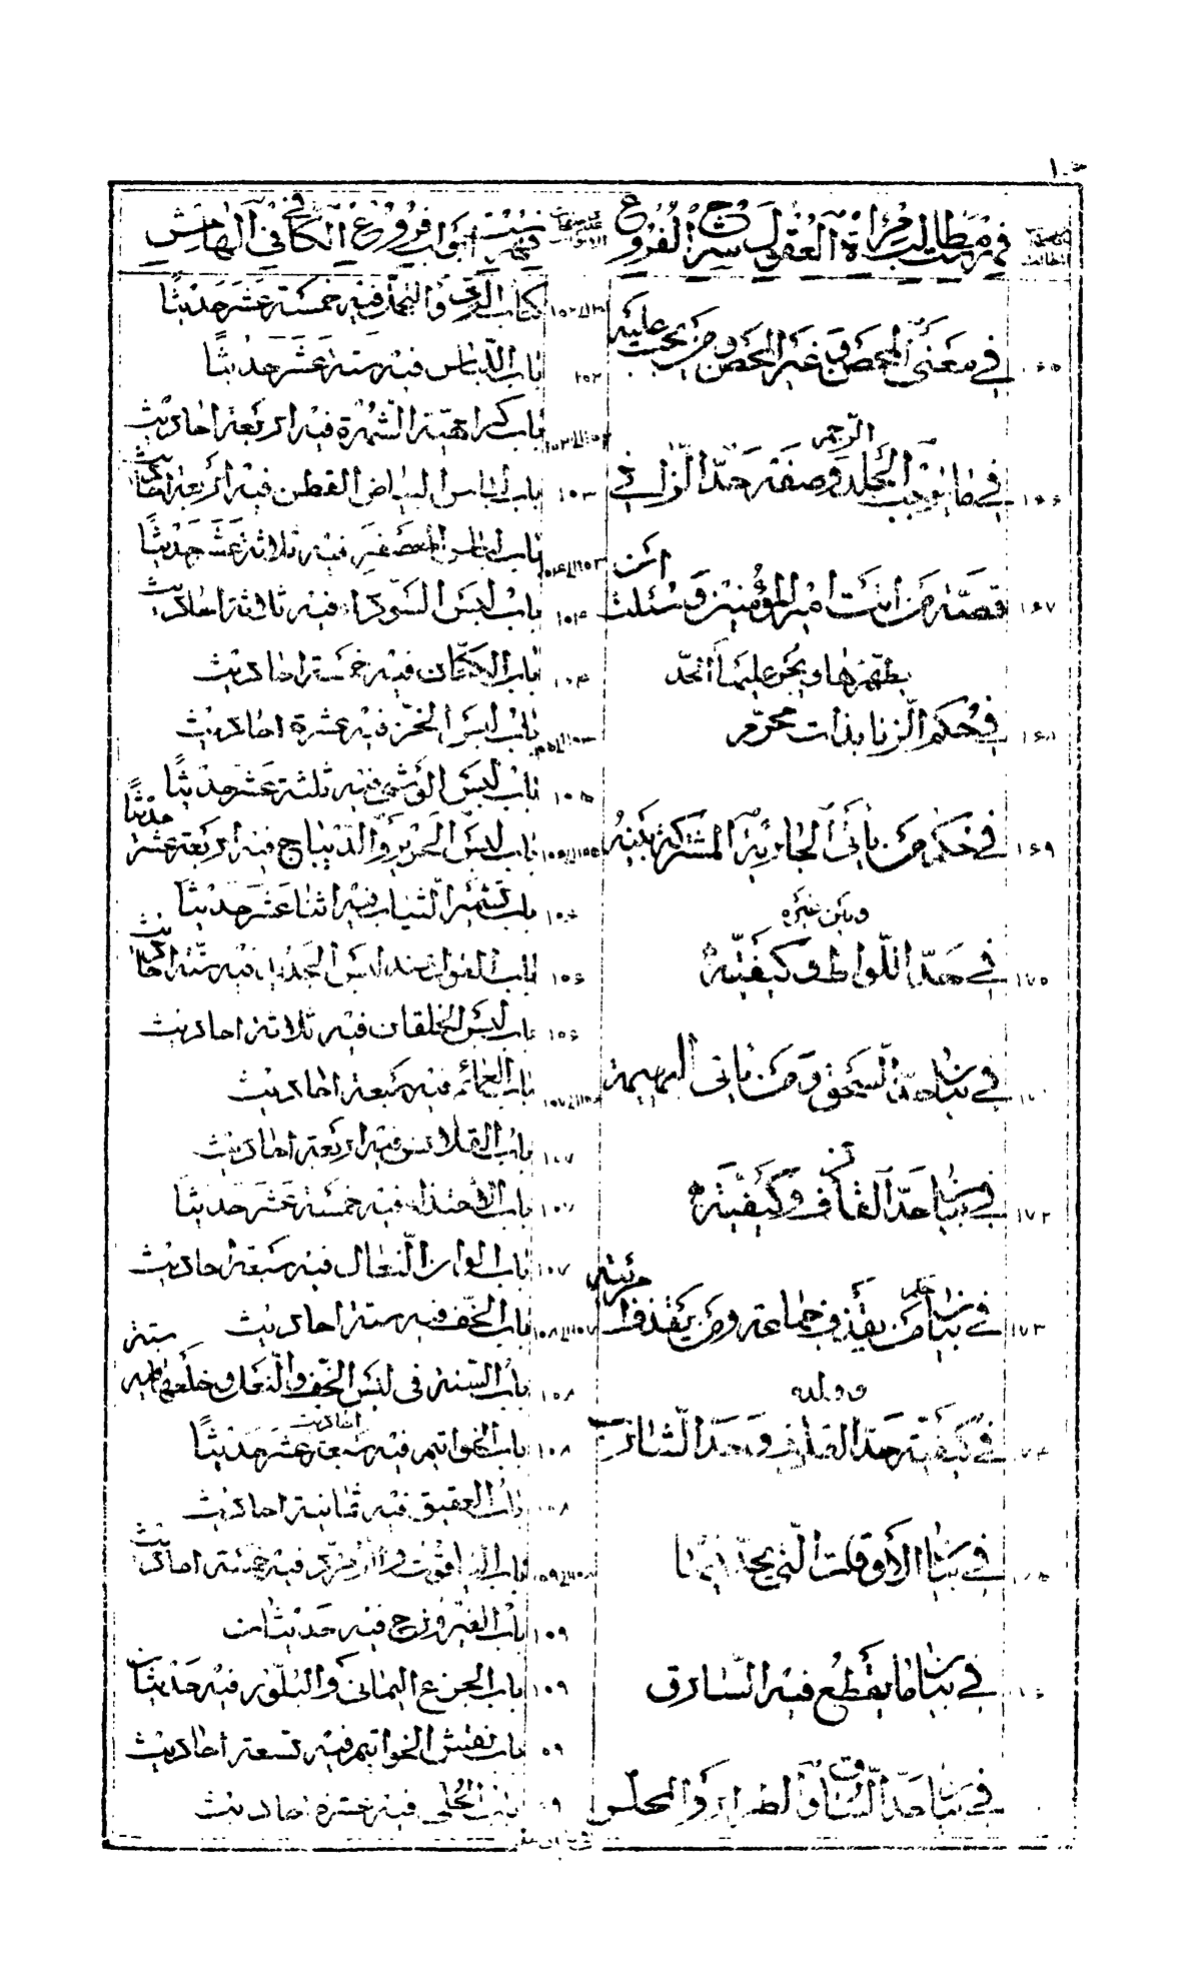 فهرست مطالب مرآة العقول ج شرح الفروع
في معنى المحصن وغير المحصن ومن يجب عليه الرجم
١٦٥
في ما يوجب الجلد وصفة حد الزاني
١٦٦
قصة من أتت أمير المؤمنين وسئلت أن
١٦٧
يطهرها ويجري عليها الحد
في حكم الزنا بذات محرم
١٦٨
في حكم من يأتي الجارية المشتركة بينه
١٦٩
وبين غيره
في حد اللواط وكيفيته
١٧٠
في بيان حد السحق ومن يأتي البهيمة
في بيان حد القاذف وكيفيته
١٧٢
في بيان حكم من يقذف جماعة ومن يقذف امرئته
١٧٣
وولده
في كيفية حد القاذف وحد الشارب
في بيان الأوقات التي يحد فيها
في بيان ما يقطع فيه السارق
في بيان حد السارق والطرار والمختلس
فهرست أبواب فروع الكافي في الهامش
كتاب الزي والتجمل فيه خمسة عشر حديثًا
باب اللباس فيه ستة عشر حديثًا
١٠٣
باب كراهية الشهرة فيه أربعة أحاديث
باب لباس البياض والقطن فيه أربعة أحاديث
١٠٣
باب لباس المعصفر فيه ثلاثة عشر حديثًا
باب لبس السواد فيه ثلاثة أحاديث
١٠٤
باب الكتان فيه خمسة أحاديث
١٠٤
باب لبس الخز فيه عشرة أحاديث
باب لبس الوشي فيه ثلثة عشر حديثًا
١٠٥
باب لبس الحرير والديباج فيه أربعة عشر حديثًا
باب تشمير الثياب فيه اثنا عشر حديثًا
١٠٦
باب القول عند لباس الجديد فيه ستة أحاديث
١٠٦
باب لبس الخلقان فيه ثلاثة أحاديث
١٠٦
باب العمائم فيه سبعة أحاديث
باب القلانس فيه أربعة أحاديث
١٠٧
باب الاحتذاء فيه خمسة عشر حديثًا
١٠٧
باب ألوان النعال فيه سبعة أحاديث
١٠٧
باب الخف فيه ستة أحاديث
باب السنة في لبس الخف والنعل وخلعهما فيه ستة أحاديث
١٠٨
باب الخواتيم فيه سبعة عشر حديثًا
١٠٨
باب العقيق فيه ثمانية أحاديث
١٠٨
باب الياقوت والزمرد فيه خمسة أحاديث
باب الفيروزج فيه حديثان
١٠٩
باب الجزع اليماني والبلور فيه حديثان
١٠٩
باب نقش الخواتيم فيه تسعة أحاديث
باب الحلى فيه عشرة أحاديث